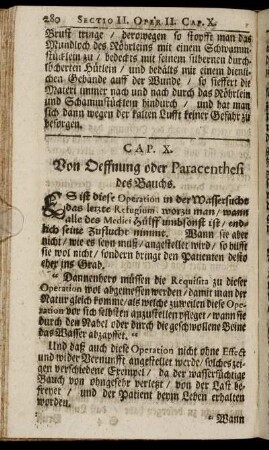 280 SECTIO II. OPER. II. CAP. X.
Brust tringe / derowegen so stopfft man das
Mundloch des Röhrleins mit einem Schwamm-
stücklein zu / bedeckts mit seinem silbernen durch-
löcherten Hütlein / und behälts mit einem dienli-
chen Gebände auff der Wunde / so siessert die
Materi immer nach und nach durch das Röhrlein
und Schwammstücklein hindurch / und hat man
sich dann wegen der kalten Lufft keiner Gefahr zu
besorgen.
CAP. X.
Von Oeffnung oder Paracenthesi
des Bauchs.
ES ist diese Operation in der Wassersucht
das letzte Refugium, worzu man / wann
alle des Medici Hülff umbsonst ist / end-
lich seine Zuflucht nimmt. Wann sie aber
nicht / wie es seyn muß / angestellet wird / so hilfft
sie wol nicht / sondern bringt den Patienten desto
eher ins Grab.
" Dannenhero müssen die Requisita zu dieser
Operation wol abgemessen werden / damit man der
Natur gleich komme / als welche zuweilen diese Ope-
ration vor sich selbsten anzustellen pfleget / wann sie
durch den Nabel oder durch die geschwollene Beine
das Wasser abzapffet.
Und daß auch diese Operation nicht ohne Effect
und wider Vernunfft angestellet werde / solches zei-
gen verschiedene Exempel / da der wassersüchtige
Bauch von ohngefehr verletzt / von der Last be-
freyet / und der Patient beym Leben erhalten
worden.
" Wann